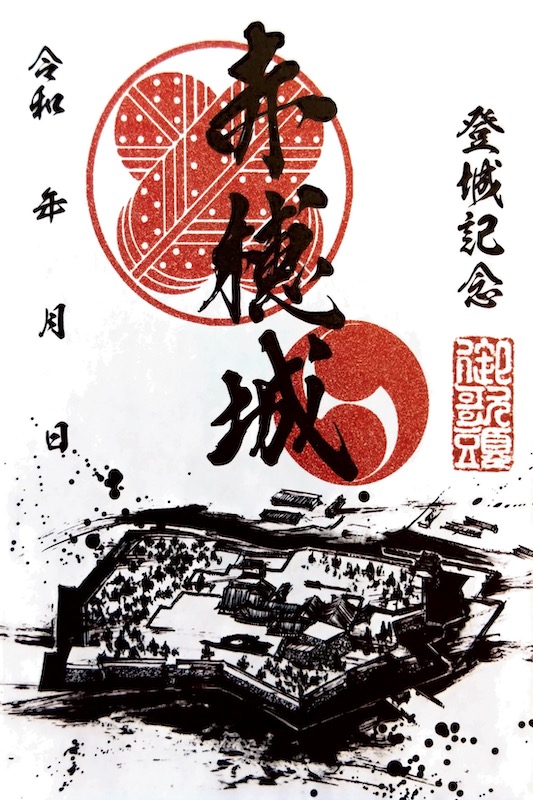 登城記念
赤穂城
令和 年 月 日